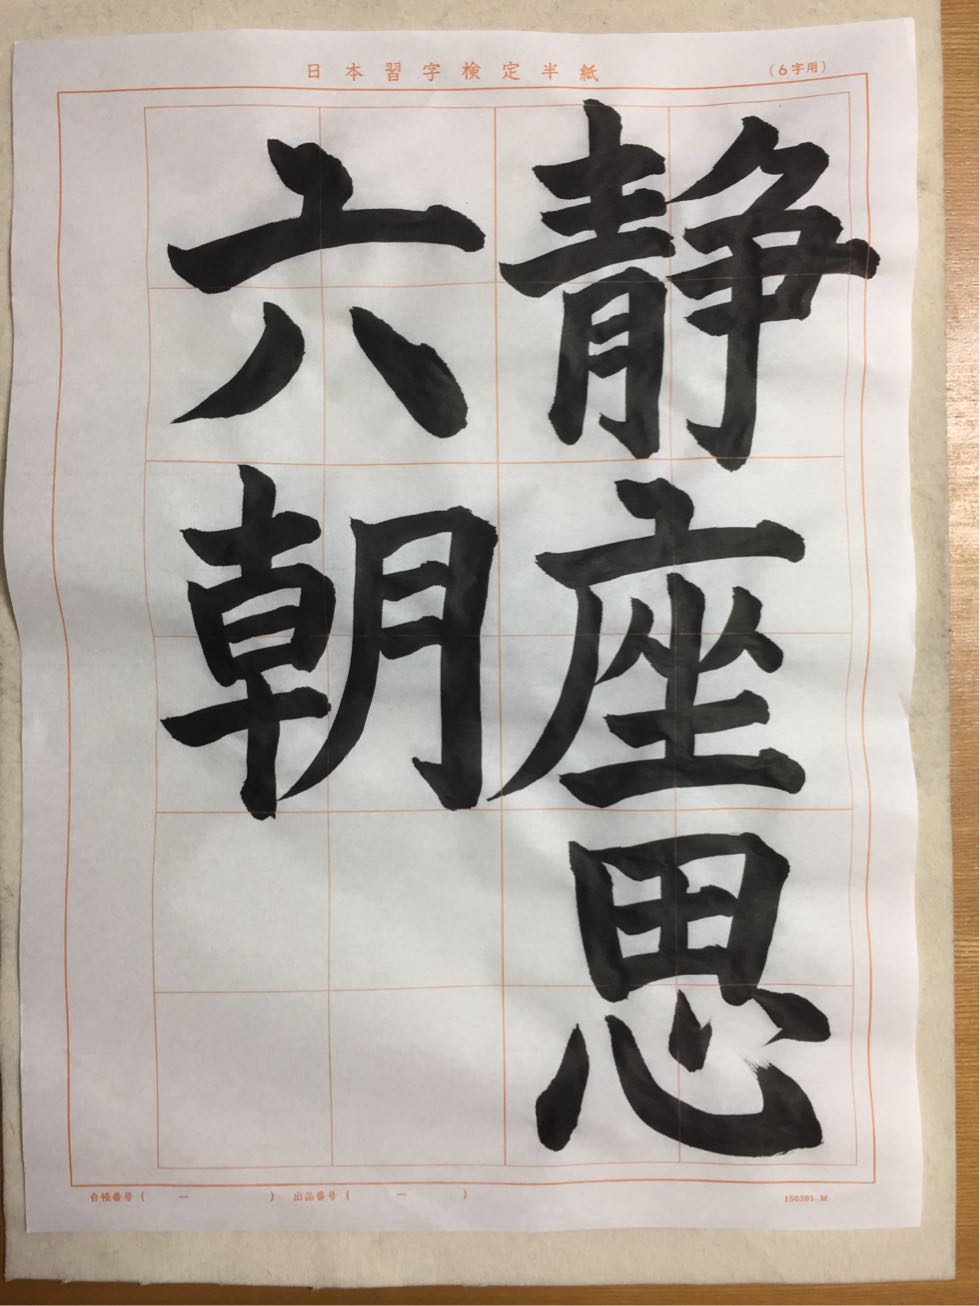 日本習字検定半紙
(6字用)
静座思
六朝
台帳番号( ー )
出品番号( ー )
150301.M